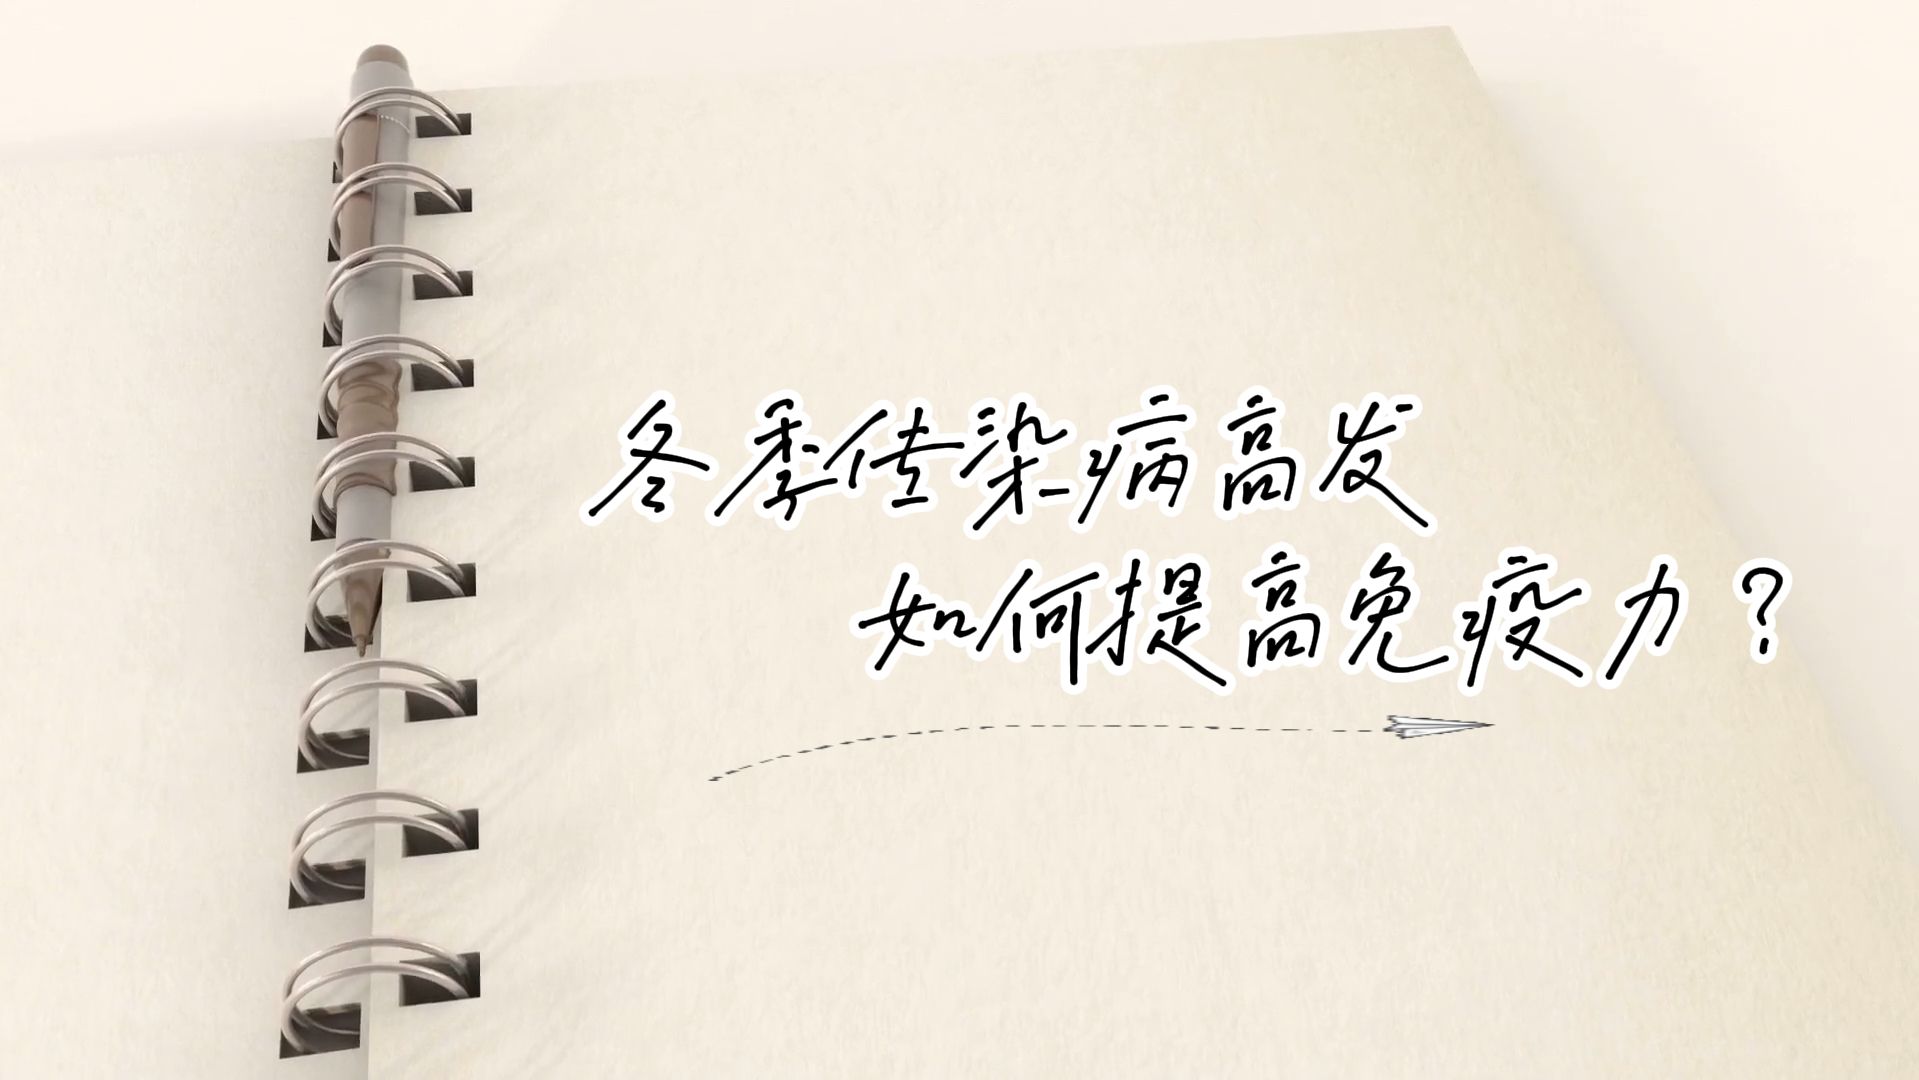 冬季传染病高发
如何提高免疫力？